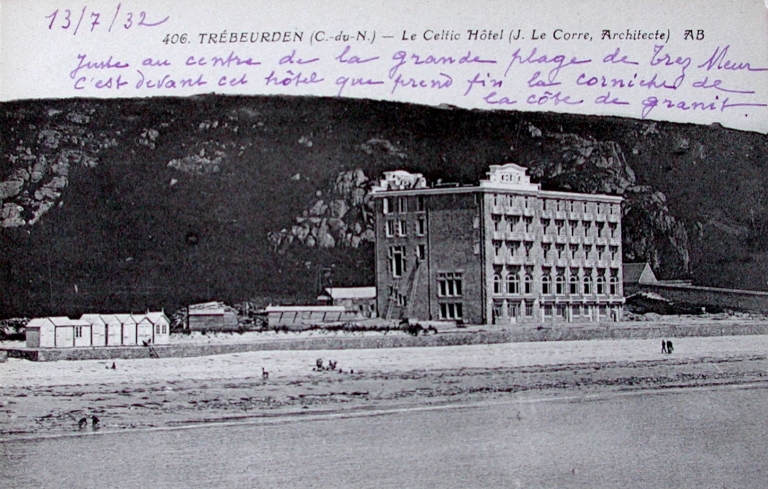 13/7/32
406. TRÉBEURDEN (C.-du-N.) — Le Celtic Hôtel (J. Le Corre, Architecte) AB
Juste au centre de la grande plage de Trez Meur
c'est devant cet hôtel que prend fin la corniche de
la côte de granit